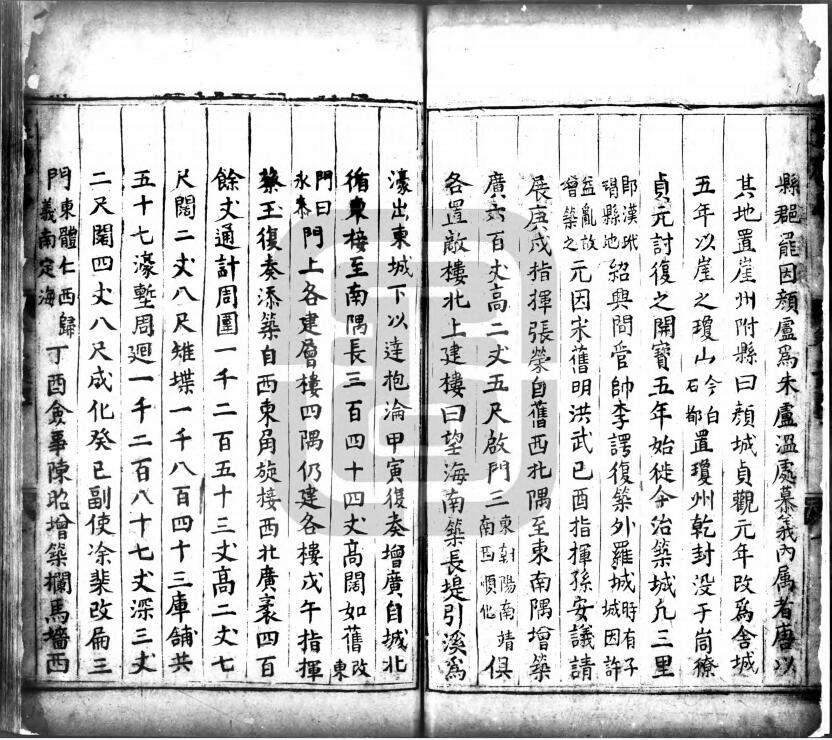 縣郡罷因顏盧爲朱盧溫處慕義內属者唐以
其地置崖州附縣曰顏城貞觀元年改爲舍城
五年以崖之瓊山今白石都置瓊州乾封没于峒獠
貞元討復之開寶五年始徙今治築城凡三里
即漢玳瑁縣地紹興間管帥李諤復築外羅城時有子城因許益亂故
曾築之元因宋舊明洪武己酉指揮孫安議請
展庚戌指揮張榮自舊西北隅至東南隅增築
廣六百丈高二丈五尺啟門三東朝陽南靖南西順化俱
各置敵樓北上建樓曰望海南築長堤引溪爲
濠出東城下以達抱淪甲寅復奏增廣自城北
循東接至南隅長三百四十四丈高闊如舊改東
門曰永泰門上各建層樓四隅仍建各樓戊午指揮
蔡玉復奏添築自西東角旋接西北廣袤四百
餘丈通計周圍一千二百五十三丈高二丈七
尺闊二丈八尺雉堞一千八百四十三庫舖共
五十七濠塹周廻一千二百八十七丈深三丈
二尺闊四丈八尺成化癸巳副使凃棐改扁三
門東體仁西歸義南定海丁酉僉事陳昭增築欄馬墻西